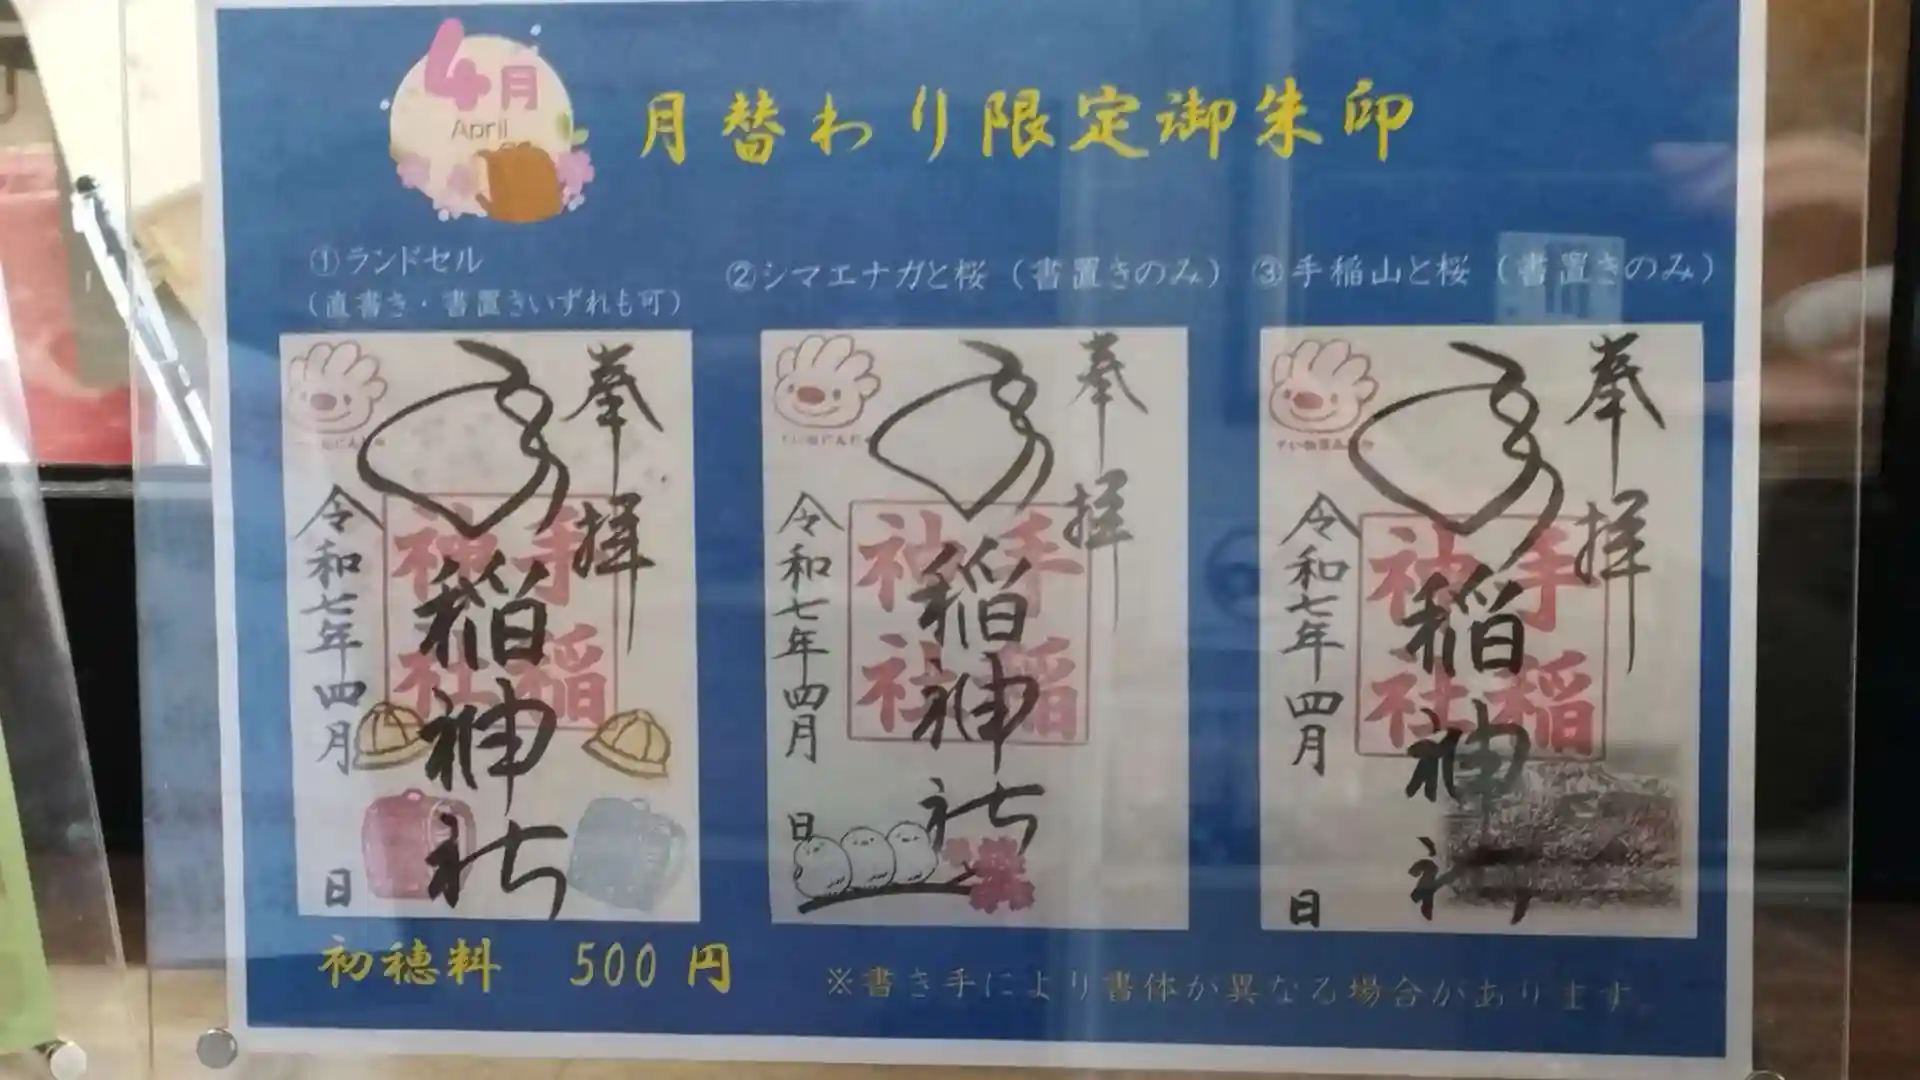 4月
April
月替わり限定御朱印
①ランドセル
（直書き・書置きいずれも可）
②シマエナガと桜（書置きのみ）
③手稲山と桜（書置きのみ）
奉拝
手稲神社
手稲
神社
令和七年四月
日
奉拝
手稲神社
手稲
神社
令和七年四月
日
奉拝
手稲神社
手稲
神社
令和七年四月
日
初穂料 500 円
※書き手により書体が異なる場合があります。